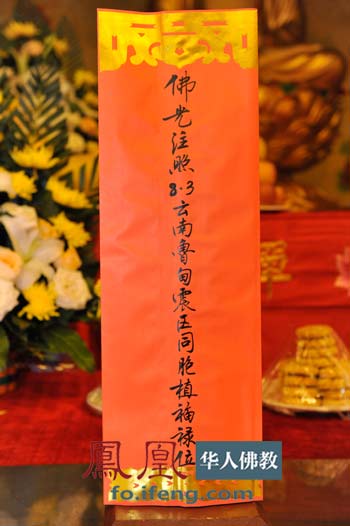 佛光注照8·3云南鲁甸震区同胞植福禄位
鳳凰 华人佛教
fo.ifeng.com